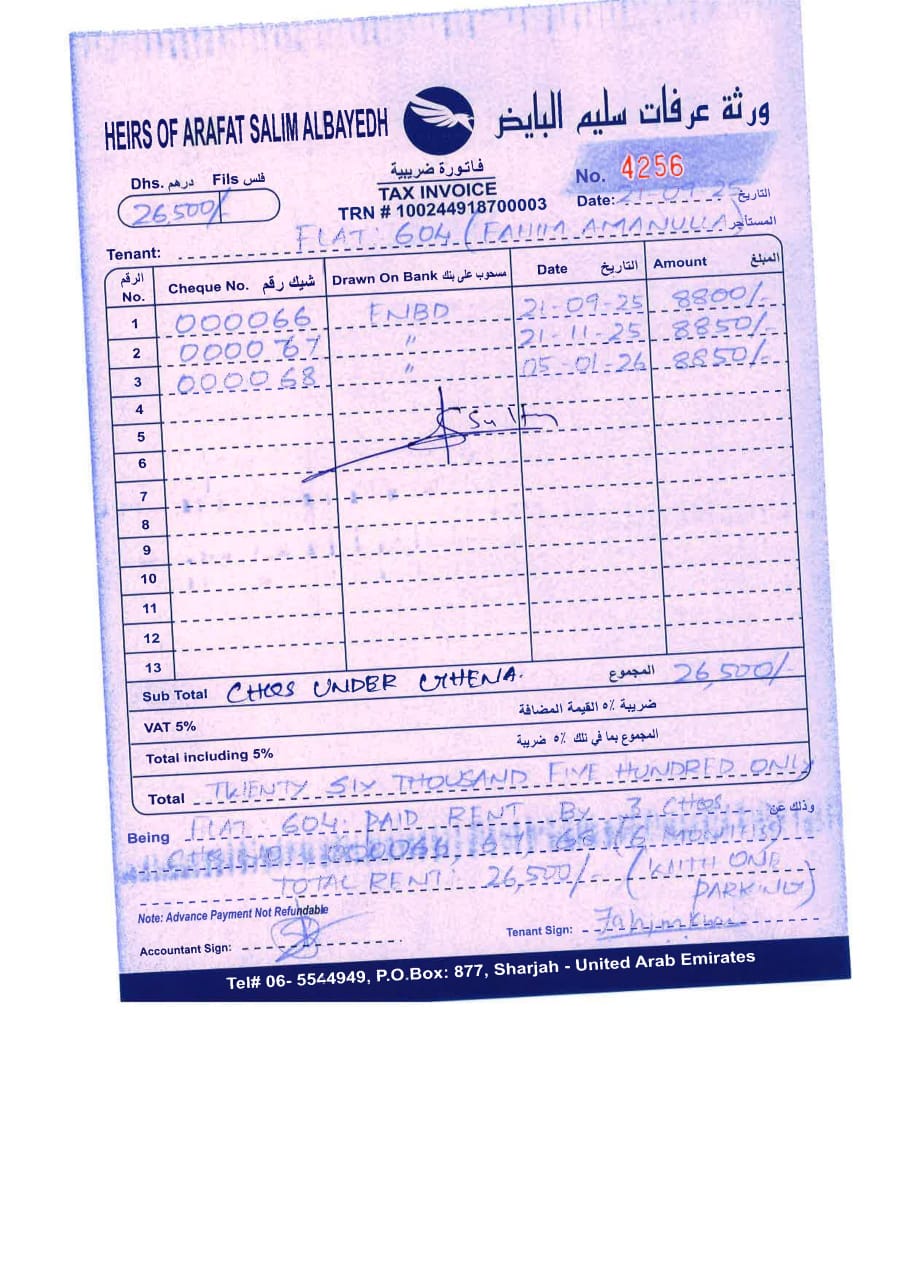 HEIRS OF ARAFAT SALIM ALBAYEDH ورثة عرفات سليم البايض
Dhs. درهم Fils فلس
26,500/-
فاتورة ضريبية
TAX INVOICE
TRN # 100244918700003
No. 4256
Date: 21-09-25 التاريخ
Tenant: FLAT: 604 (FAHIM AMANULLA) المستأجر
الرقم No. Cheque No. شيك رقم Drawn On Bank مسحوب على بنك Date التاريخ Amount المبلغ
1 000066 FNBD 21-09-25 8800/-
2 000067 " 21-11-25 8850/-
3 000068 " 05-01-26 8850/-
4
5
6
7
8
9
10
11
12
13
Sub Total CHQS UNDER المجموع 26,500/-
VAT 5% ضريبة ٥٪ القيمة المضافة
Total including 5% المجموع بما في تلك ٥٪ ضريبة
Total TWENTY SIX THOUSAND FIVE HUNDRED ONLY
Being FLAT: 604 PAID RENT BY 3 CHQS. وذلك عن
CHQ NO: 000066, 67, 68 (6 MONTHS)
TOTAL RENT: 26,500/- (WITH ONE
PARKING)
Note: Advance Payment Not Refundable
Accountant Sign:
Tenant Sign: Fahimkhan
Tel# 06- 5544949, P.O.Box: 877, Sharjah - United Arab Emirates